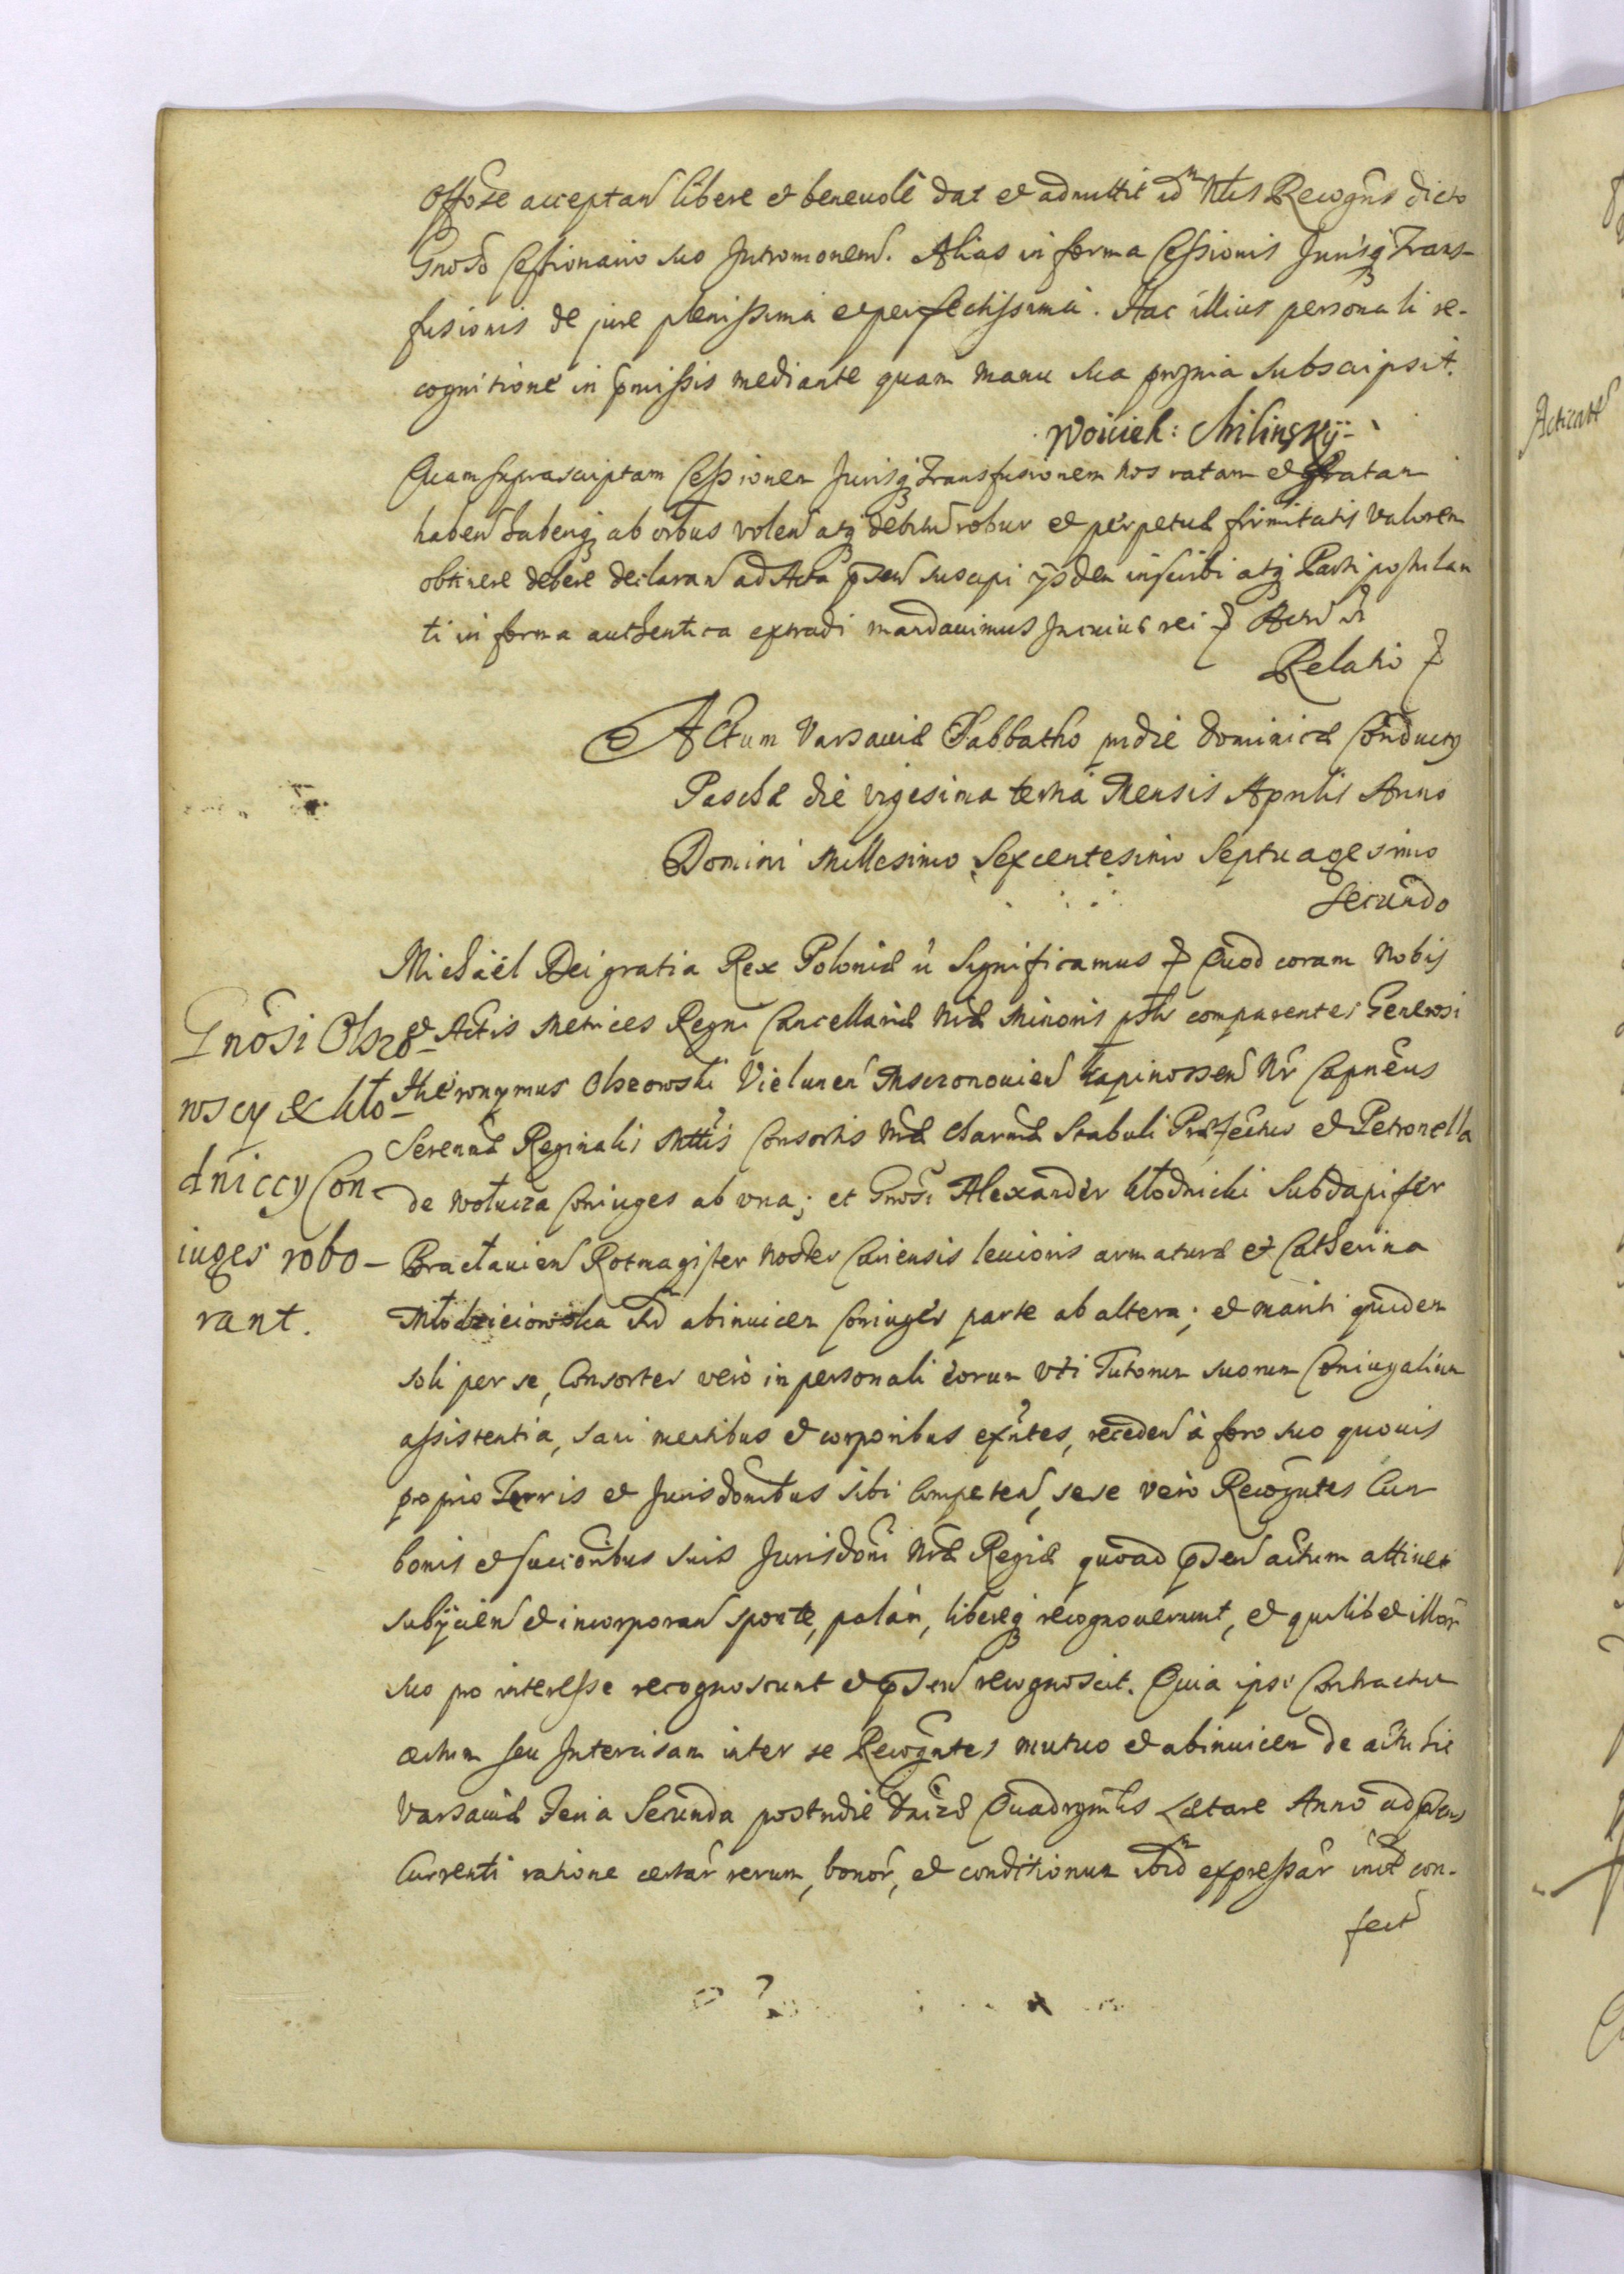 Offose acceptan libere et beneuole dat et admittit idm Ntes Recogns dicto
Gnoso Cessionario suo Intromonem. Alias in forma Cessionis Jurisq Trans-
fusionis de jure plenissima et perfectissima. Hac illius personali re-
cognitione in pmissis mediante quam manu sua ppria subscripsit.
Woiciek: Milinskÿ
Quam suprascriptam Cessionem Jurisq Transfusionem nos ratam et gratam
haben habeniq ab oibus volen atq debitum robur et perpetuæ firmitatis valorem
obtinere debere declaran ad Acta pnsen suscipi ijsdem inscribi atq Parti postulan
ti in forma authentica extradi mandauimus In cuius rei Actum
Relatio
Actum Varsauiæ Sabbatho pridie Dominicæ Conductus
Paschæ die vigesima tertia Mensis Aprilis Anno
Domini Millesimo Sexcentesimo Septuagesimo
Secundo
Michaël Dei gratia Rex Poloniæ Significamus Quod coram Nobis
et Actis Metrices Regni Cancellariæ Nræ Minoris psltr comparentes Generosi
Hieronymus Olszowski Vielunen Msczonouien Kapinossen Nr Capneus
Serenmæ Reginalis Mttis Consortis Nræ Charmæ Stabuli Præfectus et Petronella
de Wołucza Coniuges ab vna; et Gnosi Alexander Kłodnicki Subdapifer
Bracłauien Rotmagister noster Cariensis leuioris armaturæ et Catherina
Młodzieiowska itid abinuicem Coniuges parte ab altera; et mariti quidem
soli per se, Consortes vero in personali eorum vti Tutorum suorum Coniugalium
assistentia, sani mentibus et corporibus exntes, receden à foro suo quouis
proprio Terris et Jurisdonibus sibi Competen, sese vero Recogntes Cum
bonis et succionibus suis Jurisdoni Nræ Regiæ quoad pnsen actum attinet
subijcien et incorporan sponte, palam, libereq recognouerunt, et quilibet illor
suo pro interesse recognoscunt et pnsen recognoscit. Quia ipsi Contractum
certum seu Intercisam inter se Recogntes mutuo et abinuicem de actu hic
Varsauiæ Feria Secunda postridie Dnicæ Quadrgmlis Lætare Anno ad pns
Currenti ratione certar rerum, bonor, et conditionum ibid expressar init con-
fect
Gnosi Olszo-
wscy et Kło-
dniccy Con-
iuges robo-
rant.